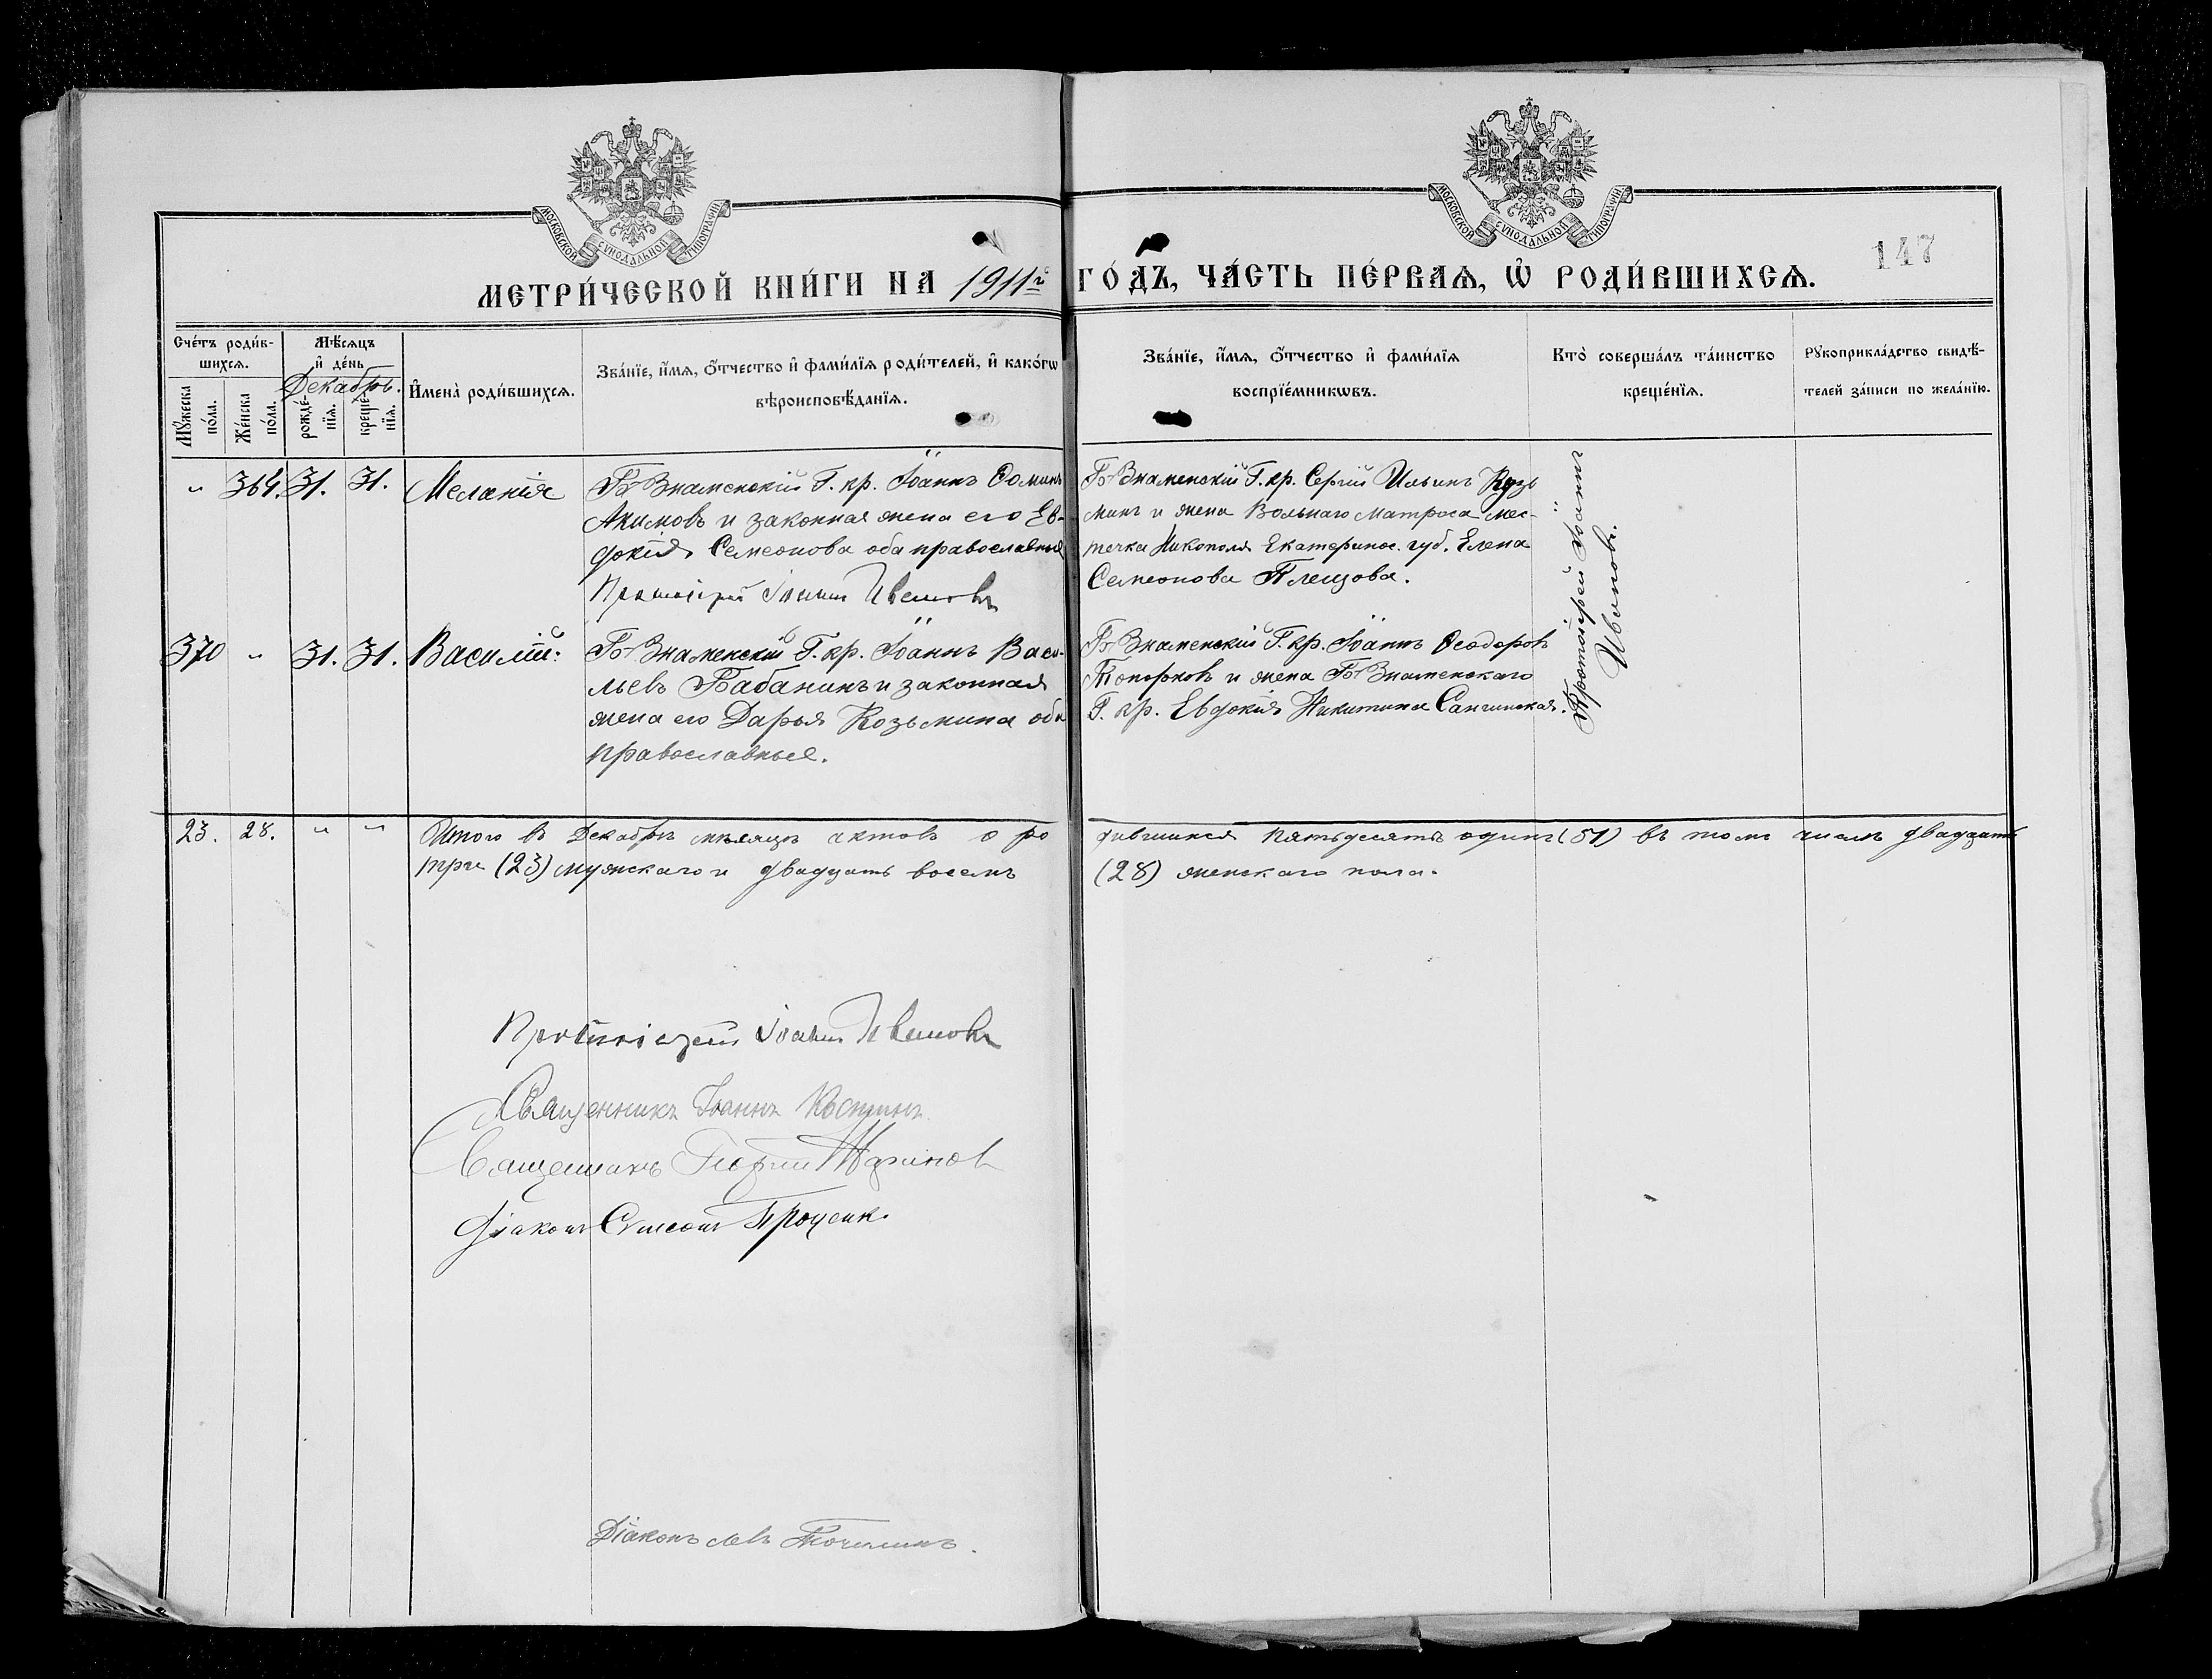 МОСКОВСКОЙ СУНОДАЛЬНОЙ ТИПОГРАФІИ
МОСКОВСКОЙ СУНОДАЛЬНОЙ ТИПОГРАФІИ
147
МЕТРИ́ЧЕСКОЙ КНИ́ГИ НА 1911й ГО́ДЪ, ЧА́СТЬ ПЕ́РВАѦ, Ѽ РОДИ́ВШИХСѦ.
Сче́тъ роди́в-
шихсѧ.
Мꙋ́жеска по́ла.
Же́нска по́ла.
Мѣ́сѧцъ
и҆ де́нь
Декабрь.
рожде́-
нїѧ.
креще́-
нїѧ.
И҆мена̀ роди́вшихсѧ.
Зва́нїе, и҆́мѧ, ѻ҆́тчество и҆ фами́лїѧ роди́телей, и҆ како́гѡ
вѣроисповѣ́данїѧ.
Зва́нїе, и҆́мѧ, ѻ҆́тчество и҆ фами́лїѧ
воспрїе́мникѡвъ.
Кто̀ соверша́лъ та́инство
креще́нїѧ.
Рꙋкоприкла́дство свидѣ́-
телей за́писи по жела́нїю.
" 364. 31. 31. Меланія
Б-Знаменскій Г. кр. Іоаннъ Ѳоминъ
Акимовъ и законная жена его Ев-
докія Семеонова оба православные
Протоіерей Іоаннъ Ивановъ
Б-Знаменскій Г. кр. Сергій Ильинъ Кузь
минъ и жена Вольнаго матроса мес-
течка Никополя Екатеринос. губ. Елена
Семеонова Плещова.
Протоіерей Іоаннъ
Ивановъ.
370 " 31. 31. Василій:
Б-Знаменскій Г. кр. Іоаннъ Васи-
льевъ Бабанинъ и законная
жена его Дарья Козьмина оба
православные.
Б-Знаменскій Г. кр. Іоаннъ Ѳеодоровъ
Топорковъ и жена Б-Знаменскаго
Г. кр. Евдокія Никитина
23. 28. " " Итого въ Декабрѣ мѣсяцѣ актовъ о ро дившихся пятьдесятъ одинъ (51) въ томъ числѣ двадцать
три (23) мужскаго и двадцать восемь (28) женскаго пола.
Протоіерей Іоаннъ Ивановъ
Священникъ Іоаннъ
Священникъ Георгій
Діаконъ Симеонъ Проценк
Діаконъ Левъ